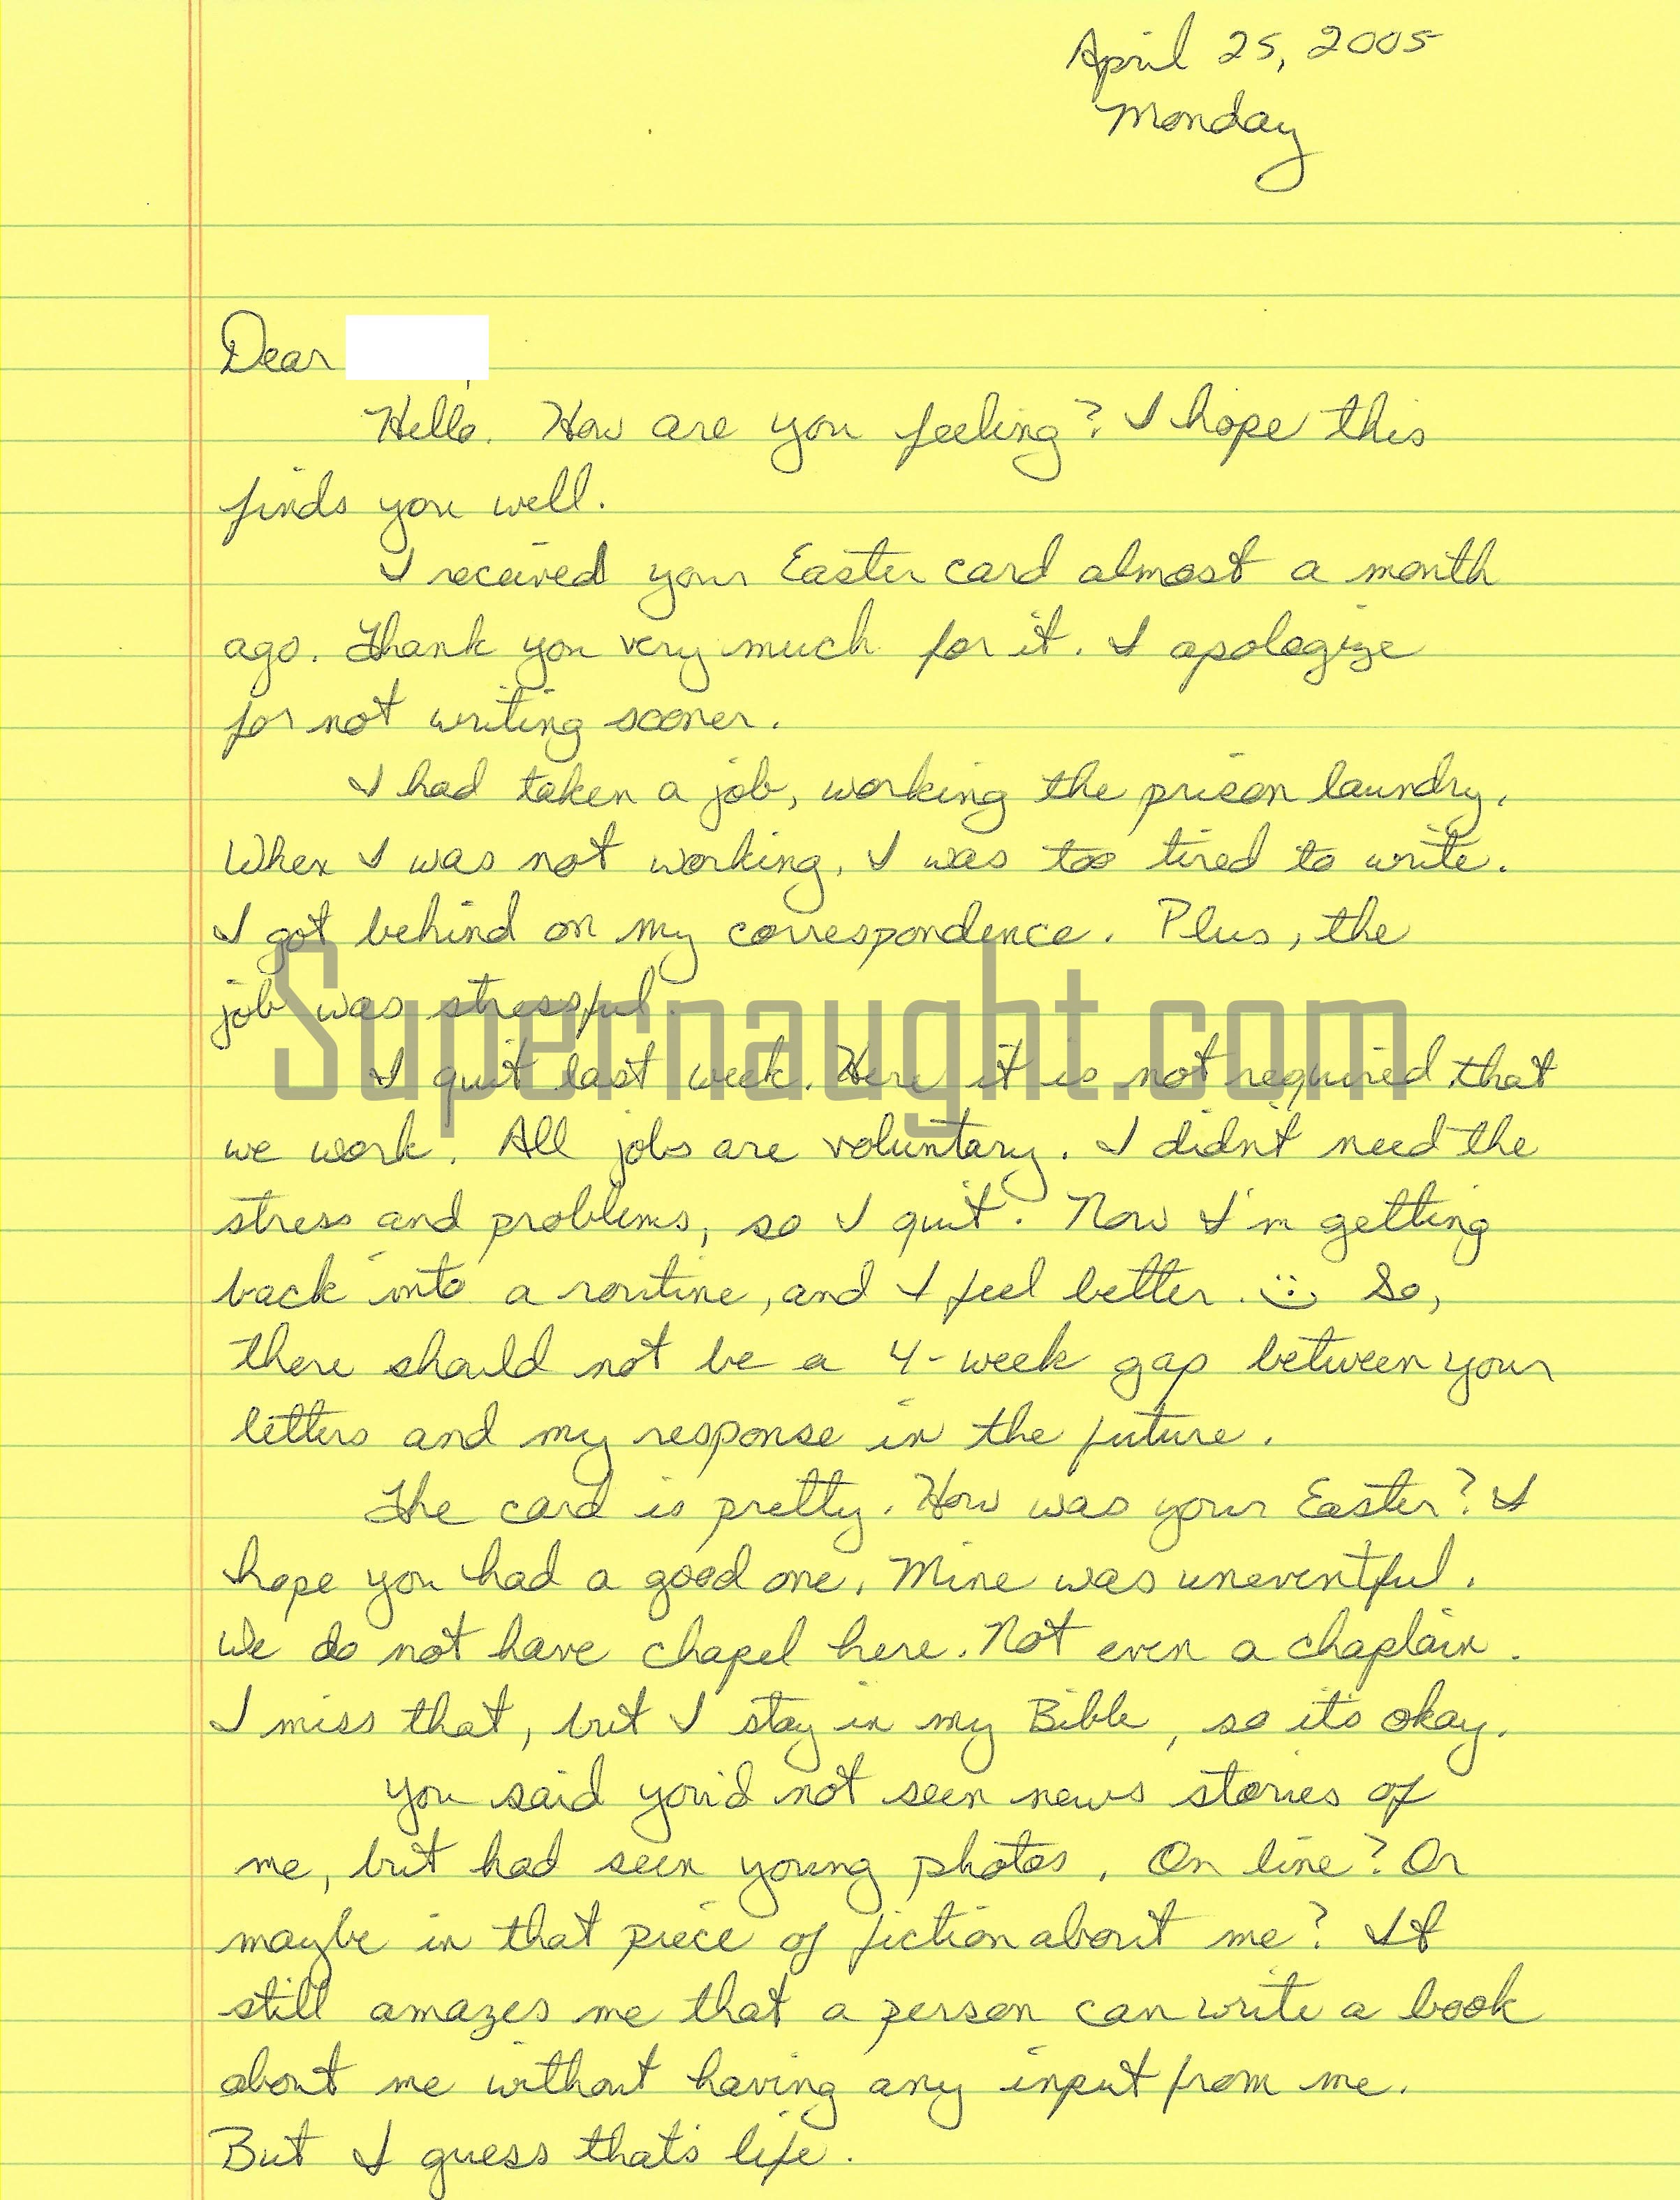 April 25, 2005
Monday
Dear
Hello. How are you feeling? I hope this
finds you well.
I received your Easter card almost a month
ago. Thank you very much for it. I apologize
for not writing sooner.
I had taken a job, working the prison laundry.
When I was not working, I was too tired to write.
I got behind on my correspondence. Plus, the
job was stressful.
Supernaught.com
I quit last week. Here it is not required that
we work. All jobs are voluntary. I didn't need the
stress and problems, so I quit. Now I'm getting
back into a routine, and I feel better. So,
there should not be a 4-week gap between your
letters and my response in the future.
The card is pretty. How was your Easter? I
hope you had a good one. Mine was uneventful.
We do not have chapel here. Not even a chaplain.
I miss that, but I stay in my Bible, so it's okay.
You said you'd not seen news stories of
me, but had seen young photos. On line? Or
maybe in that piece of fiction about me? It
still amazes me that a person can write a book
about me without having any input from me.
But I guess that's life.